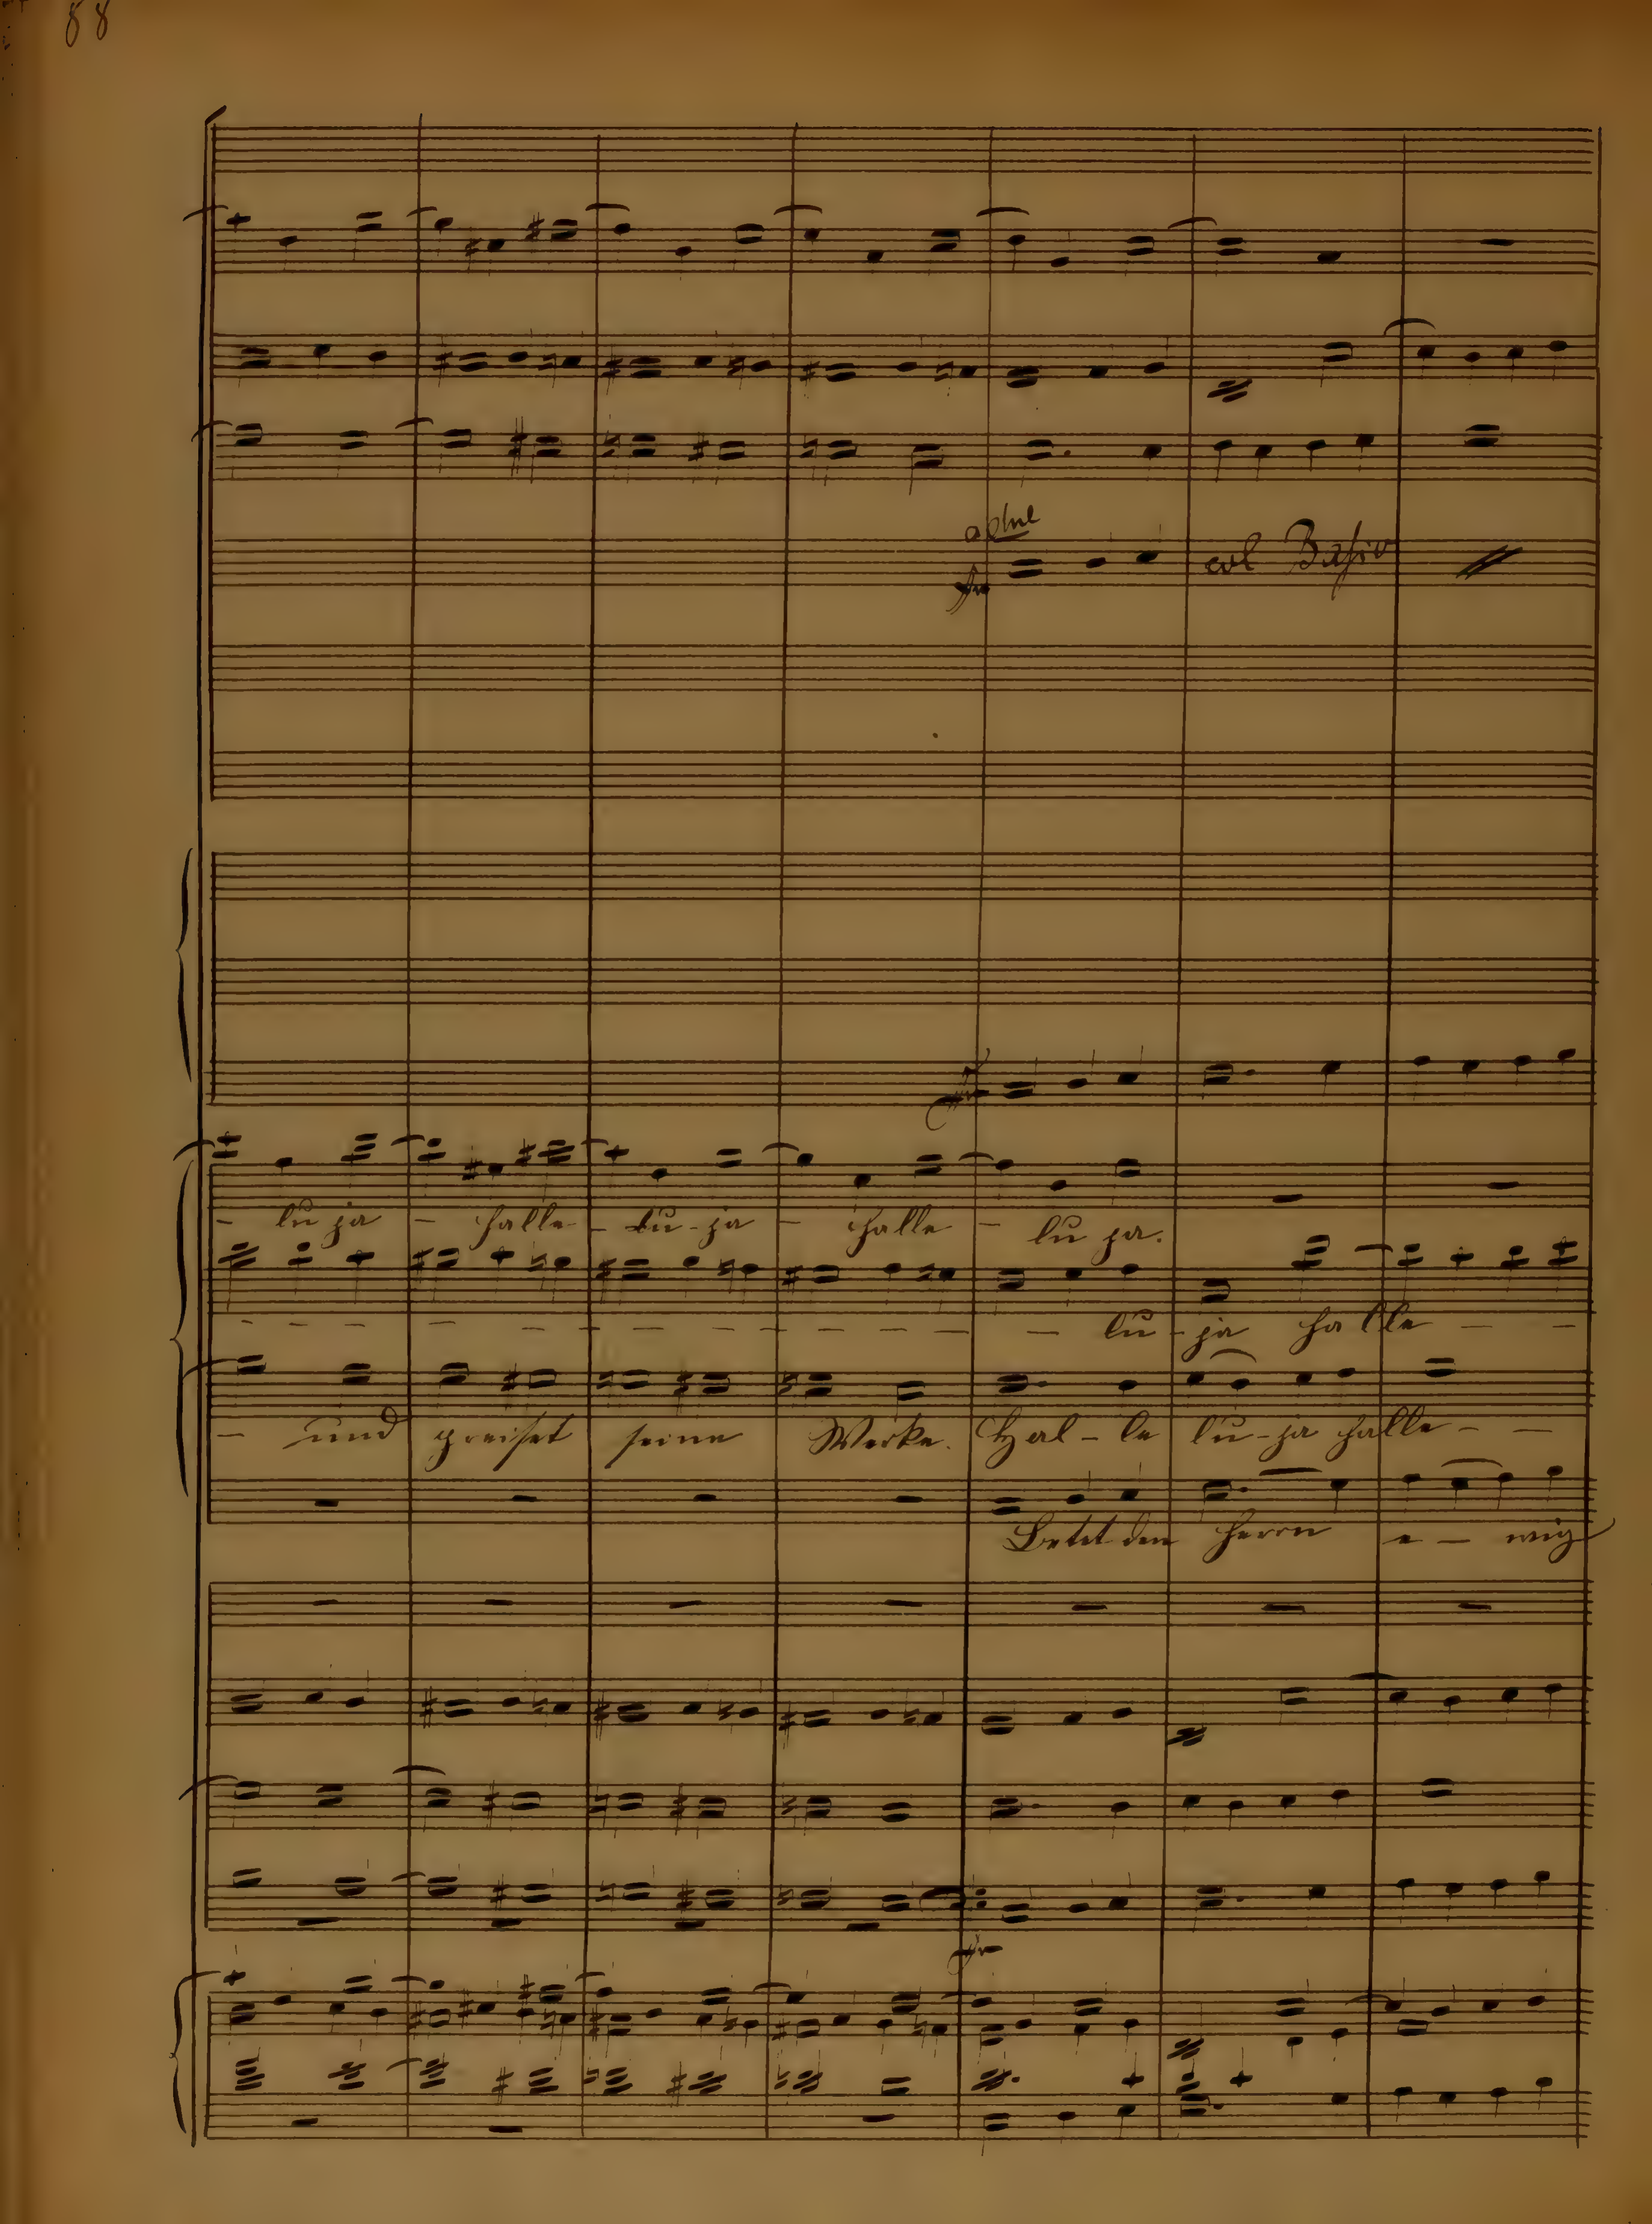 88
col Basso
- lu ja - halle - lu - ja - halle - lu ja.
- - - - - - - - - - - lu - ja halle - -
- und preiset seine Werke. Hal - le lu - ja halle - -
Betet den Herrn e - wig